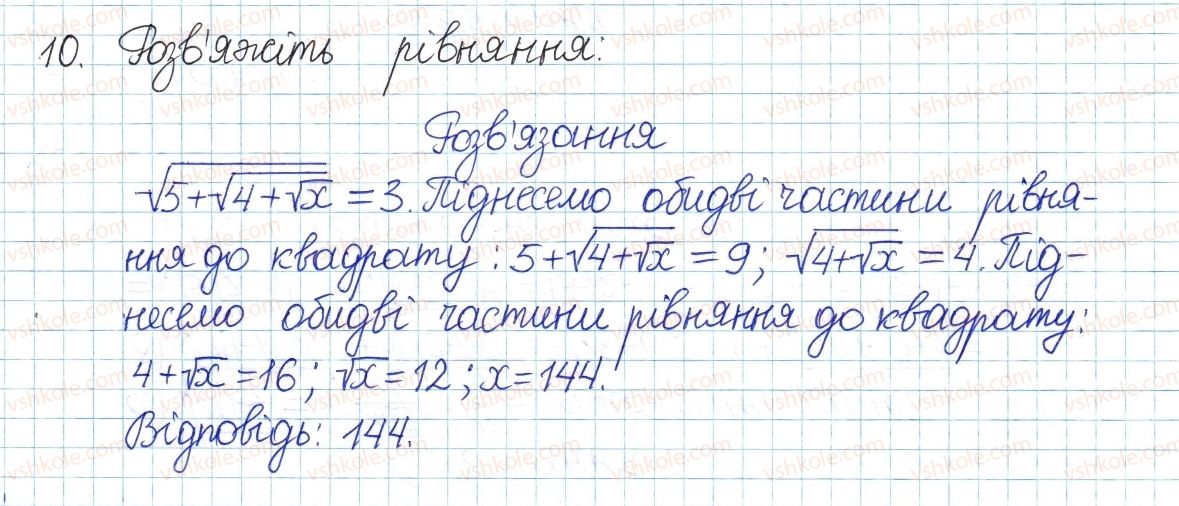 10. Розв'яжіть рівняння:
Розв'язання
√(5+√(4+√x)) = 3. Піднесемо обидві частини рівня-
ння до квадрату: 5+√(4+√x) = 9; √(4+√x) = 4. Під-
несемо обидві частини рівняння до квадрату:
4+√x = 16; √x = 12; x = 144.
Відповідь: 144.